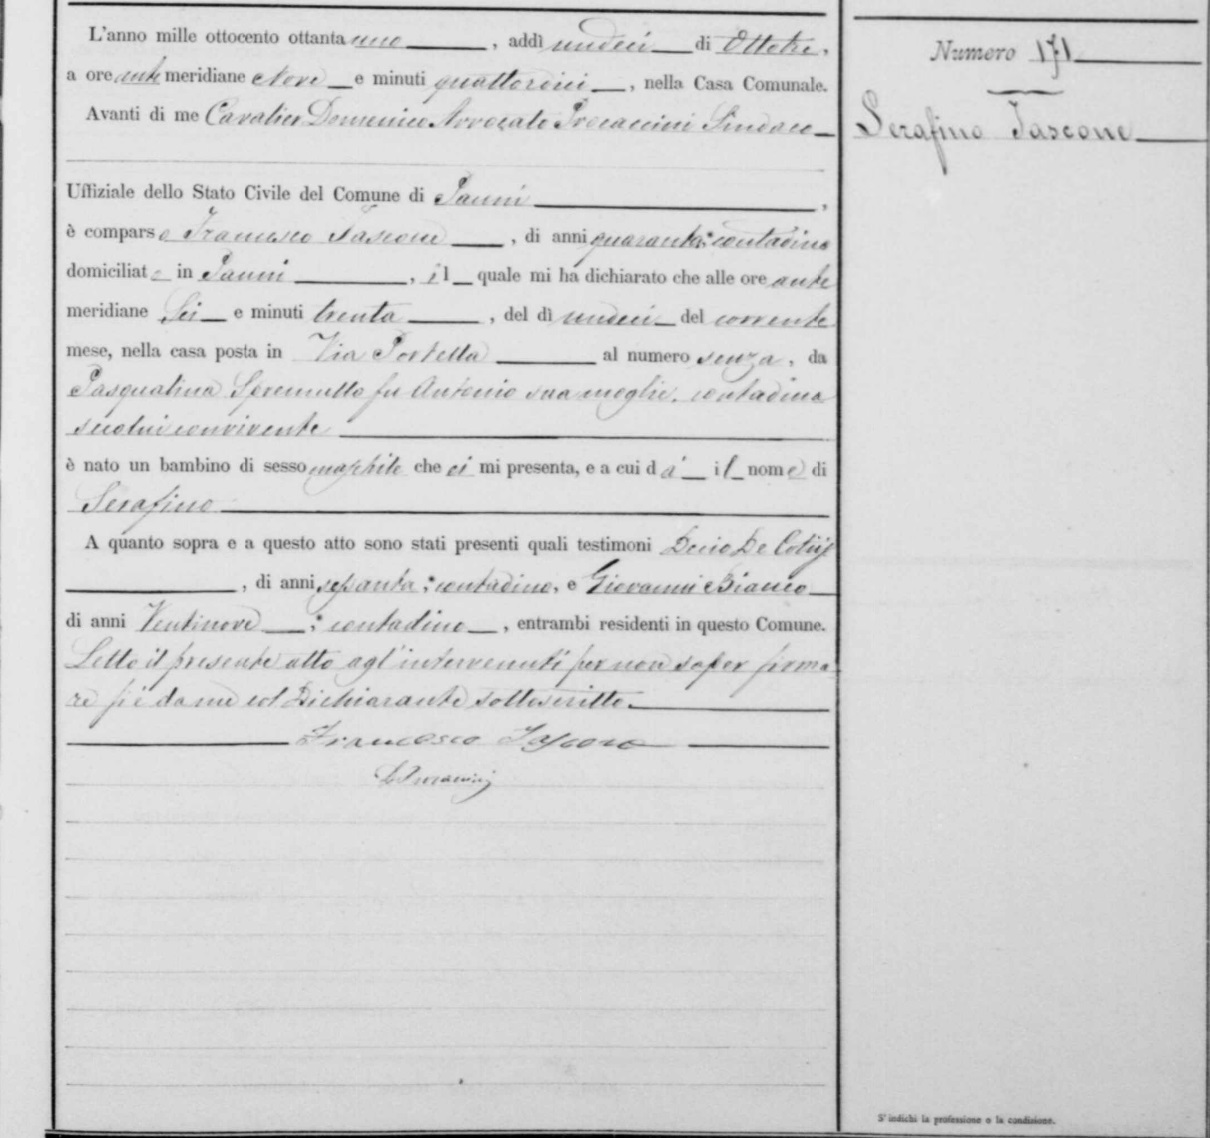 L'anno mille ottocento ottanta uno, addì undici di Ottobre,
a ore ante meridiane Nove e minuti quattordici, nella Casa Comunale.
Avanti di me Cavalier Domenico Avvocato Procaccini Sindaco
Uffiziale dello Stato Civile del Comune di Panni,
è comparso Francesco Tascone, di anni quaranta; contadino
domiciliato in Panni, il quale mi ha dichiarato che alle ore ante
meridiane Sei e minuti trenta, del dì undici del corrente
mese, nella casa posta in Via Portella al numero senza, da
Pasqualina fu Antonio sua moglie, contadina
secolui convivente
è nato un bambino di sesso maschile che ei mi presenta, e a cui dà il nome di
Serafino
A quanto sopra e a questo atto sono stati presenti quali testimoni Decio De Cotiis
, di anni sessanta; contadino, e Giovanni Bianco
di anni Ventinove; contadino, entrambi residenti in questo Comune.
Letto il presente atto agl'intervenuti per non saper firma-
re si è da me col Dichiarante sottoscritto.
Francesco Tascone
D Procaccini
Numero 171
Serafino Tascone
S' indichi la professione o la condizione.